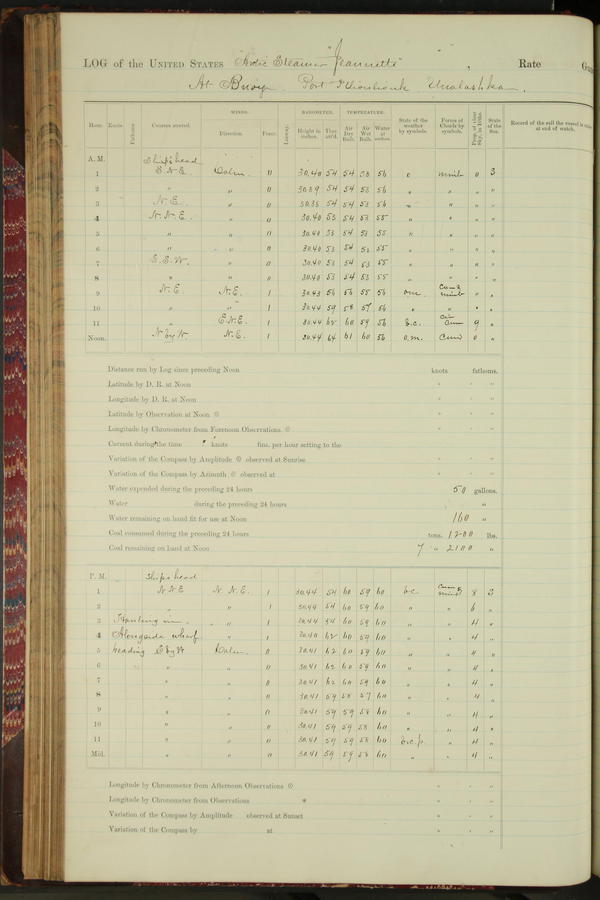 LOG of the UNITED STATES Arctic Steamer "Jeannette" Rate
At Buoy. Port Unalashka.
Hour. Knots. Fathoms. Courses steered. WINDS. Direction. Force. Leeway. BAROMETER. Height in inches. Ther. att'd. TEMPERATURE. Air Dry Bulb. Air Wet Bulb. Water at surface. State of the weather by symbols. Forms of Clouds by symbols. Prop. of clear Sky, in 10ths. State of the Sea. Record of the sail the vessel is under at end of watch.
A. M. Ship's head
1 Calm. 0 30.40 54 54 53 56 0 3
2 " " 0 30.39 54 54 53 56 " " " "
3 N.E. " 0 30.38 54 54 53 56 " " " "
4 N.N.E. " 0 30.40 53 54 53 55 " " " "
5 " " 0 30.40 53 54 53 55 " " " "
6 " " 0 30.40 53 54 53 55 " " " "
7 " 0 30.40 53 54 53 55 " " " "
8 " " 0 30.40 53 54 53 55 " " " "
9 N.E. N.E. 1 30.43 56 56 55 56 " "
10 " " 1 30.44 59 58 57 56 " " " "
11 " E.N.E. 1 30.44 62 60 59 56 b.c. 9 "
Noon. N by W. N.E. 1 30.44 64 61 60 56 o.m. Cum 0 "
Distance run by Log since preceding Noon knots fathoms.
Latitude by D. R. at Noon ° ' "
Longitude by D. R. at Noon ° ' "
Latitude by Observation at Noon ☉ ° ' "
Longitude by Chronometer from Forenoon Observations ☉ ° ' "
Current during the time knots fms. per hour setting to the
Variation of the Compass by Amplitude ☉ observed at Sunrise ° ' "
Variation of the Compass by Azimuth ☉ observed at ° ' "
Water expended during the preceding 24 hours 50 gallons.
Water during the preceding 24 hours "
Water remaining on hand fit for use at Noon 160 "
Coal consumed during the preceding 24 hours tons. 1200 lbs.
Coal remaining on hand at Noon 7 " 2100 "
P. M. Ship's head
1 N.N.E N.N.E. 1 30.44 54 60 59 60 b.c. 8 3
2 " " 1 30.44 54 60 59 60 " " 6 "
3 Hauling in. " 1 30.44 54 60 59 60 " " 4 "
4 Alongside wharf " 1 30.40 62 60 59 60 " " 4 "
5 heading Calm. 0 30.41 62 60 59 60 " " 4 "
6 " " 0 30.41 62 60 59 60 " " 4 "
7 " " 0 30.41 62 60 59 60 " " 4 "
8 " " 0 30.41 59 58 57 60 " " 4 "
9 " " 0 30.41 59 59 58 60 " " 4 "
10 " " 0 30.41 59 59 58 60 " " 4 "
11 " " 0 30.41 59 59 58 60 " 4 "
Mid. " " 0 30.41 59 59 58 60 " " 4 "
Longitude by Chronometer from Afternoon Observations ☉ ° ' "
Longitude by Chronometer from Observations * ° ' "
Variation of the Compass by Amplitude observed at Sunset ° ' "
Variation of the Compass by at ° ' "